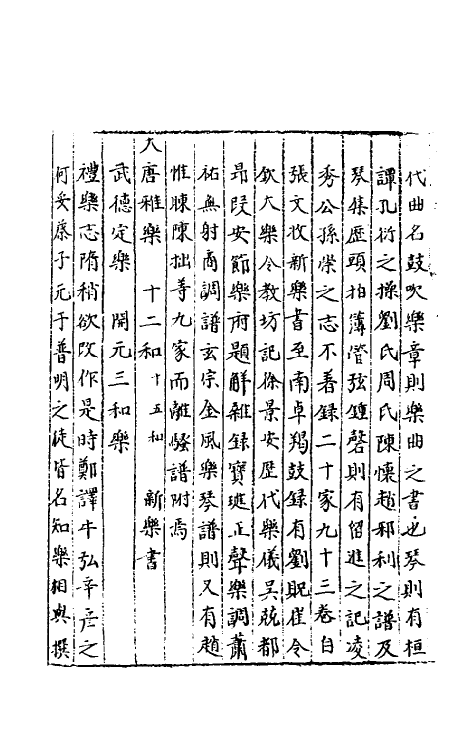 代曲名鼓吹樂章則樂曲之書也琴則有桓
譚孔衍之操劉氏周氏陳懷趙邪利之譜及
琴集歷頭拍簿管弦鍾磬則有留進之記凌
秀公孫崇之志不著錄二十家九十三卷自
張文收新樂書至南卓羯鼓錄有劉貺崔令
欽大樂令教坊記徐景安歷代樂儀吳兢都
昂段安節樂府題解雜錄寶璡正聲樂調蕭
祐無射商調譜玄宗金風樂琴譜則又有趙
惟暕陳拙等九家而離騷譜附焉
大唐雅樂 十二和 十五和 新樂書
武德定樂 開元三和樂
禮樂志隋稍欲改作是時鄭譯牛弘辛彥之
何妥蔡子元于普明之徒皆名知樂相與撰